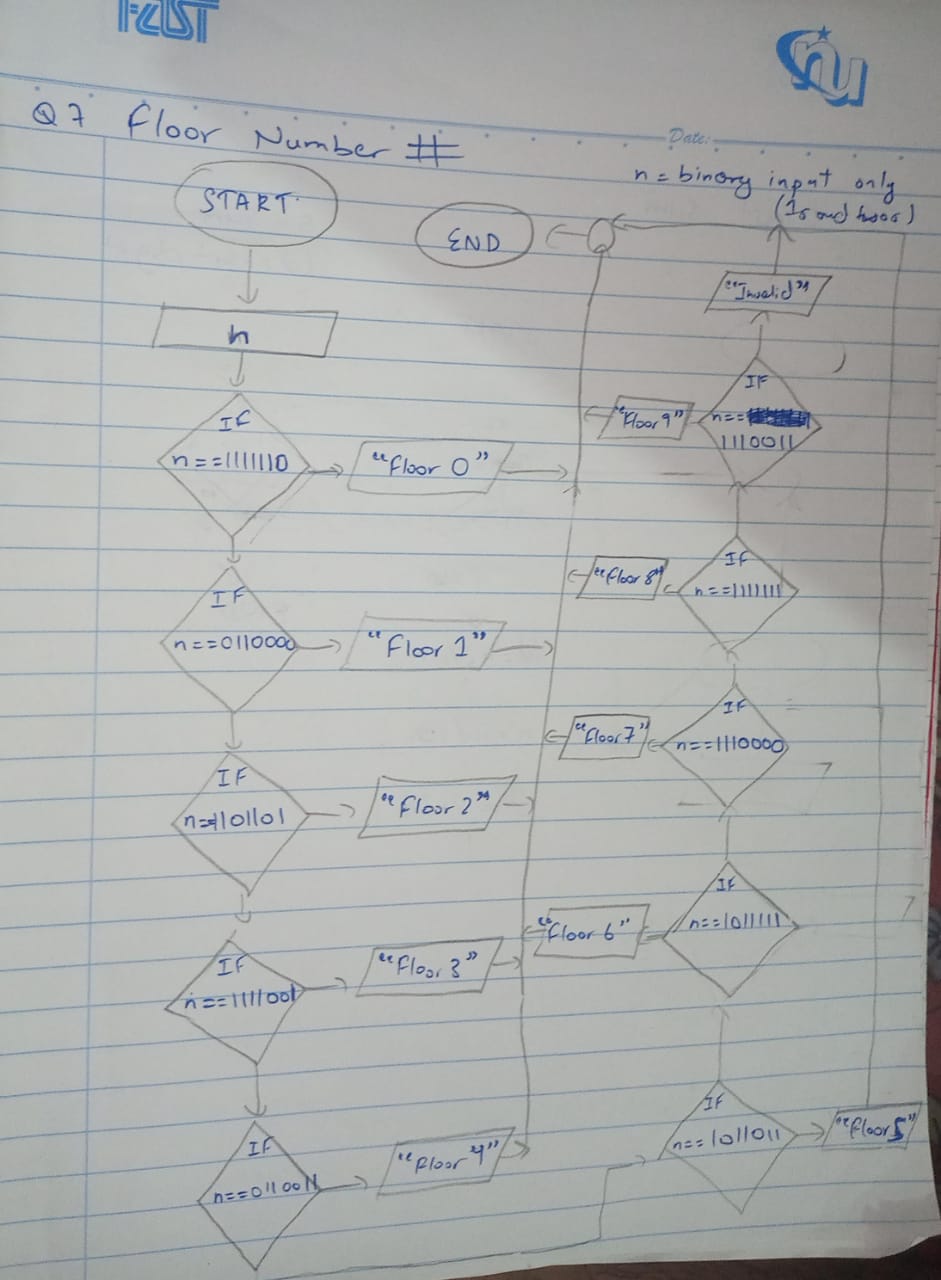 FAST
nu
Q7 Floor Number #
Date:
n = binary input only
(1s and twos)
START
END
n
"Invalid"
IF
n==1111110
"floor 0"
IF
n==0110000
"Floor 1"
IF
n==1101101
"floor 2"
IF
n==1111001
"Floor 3"
IF
n==0110011
"Floor 4"
IF
n==1011011
"floor 5"
IF
n==1011111
"floor 6"
IF
n==1110000
"floor 7"
IF
n==1111111
"floor 8"
IF
n==
1110011
"Floor 9"